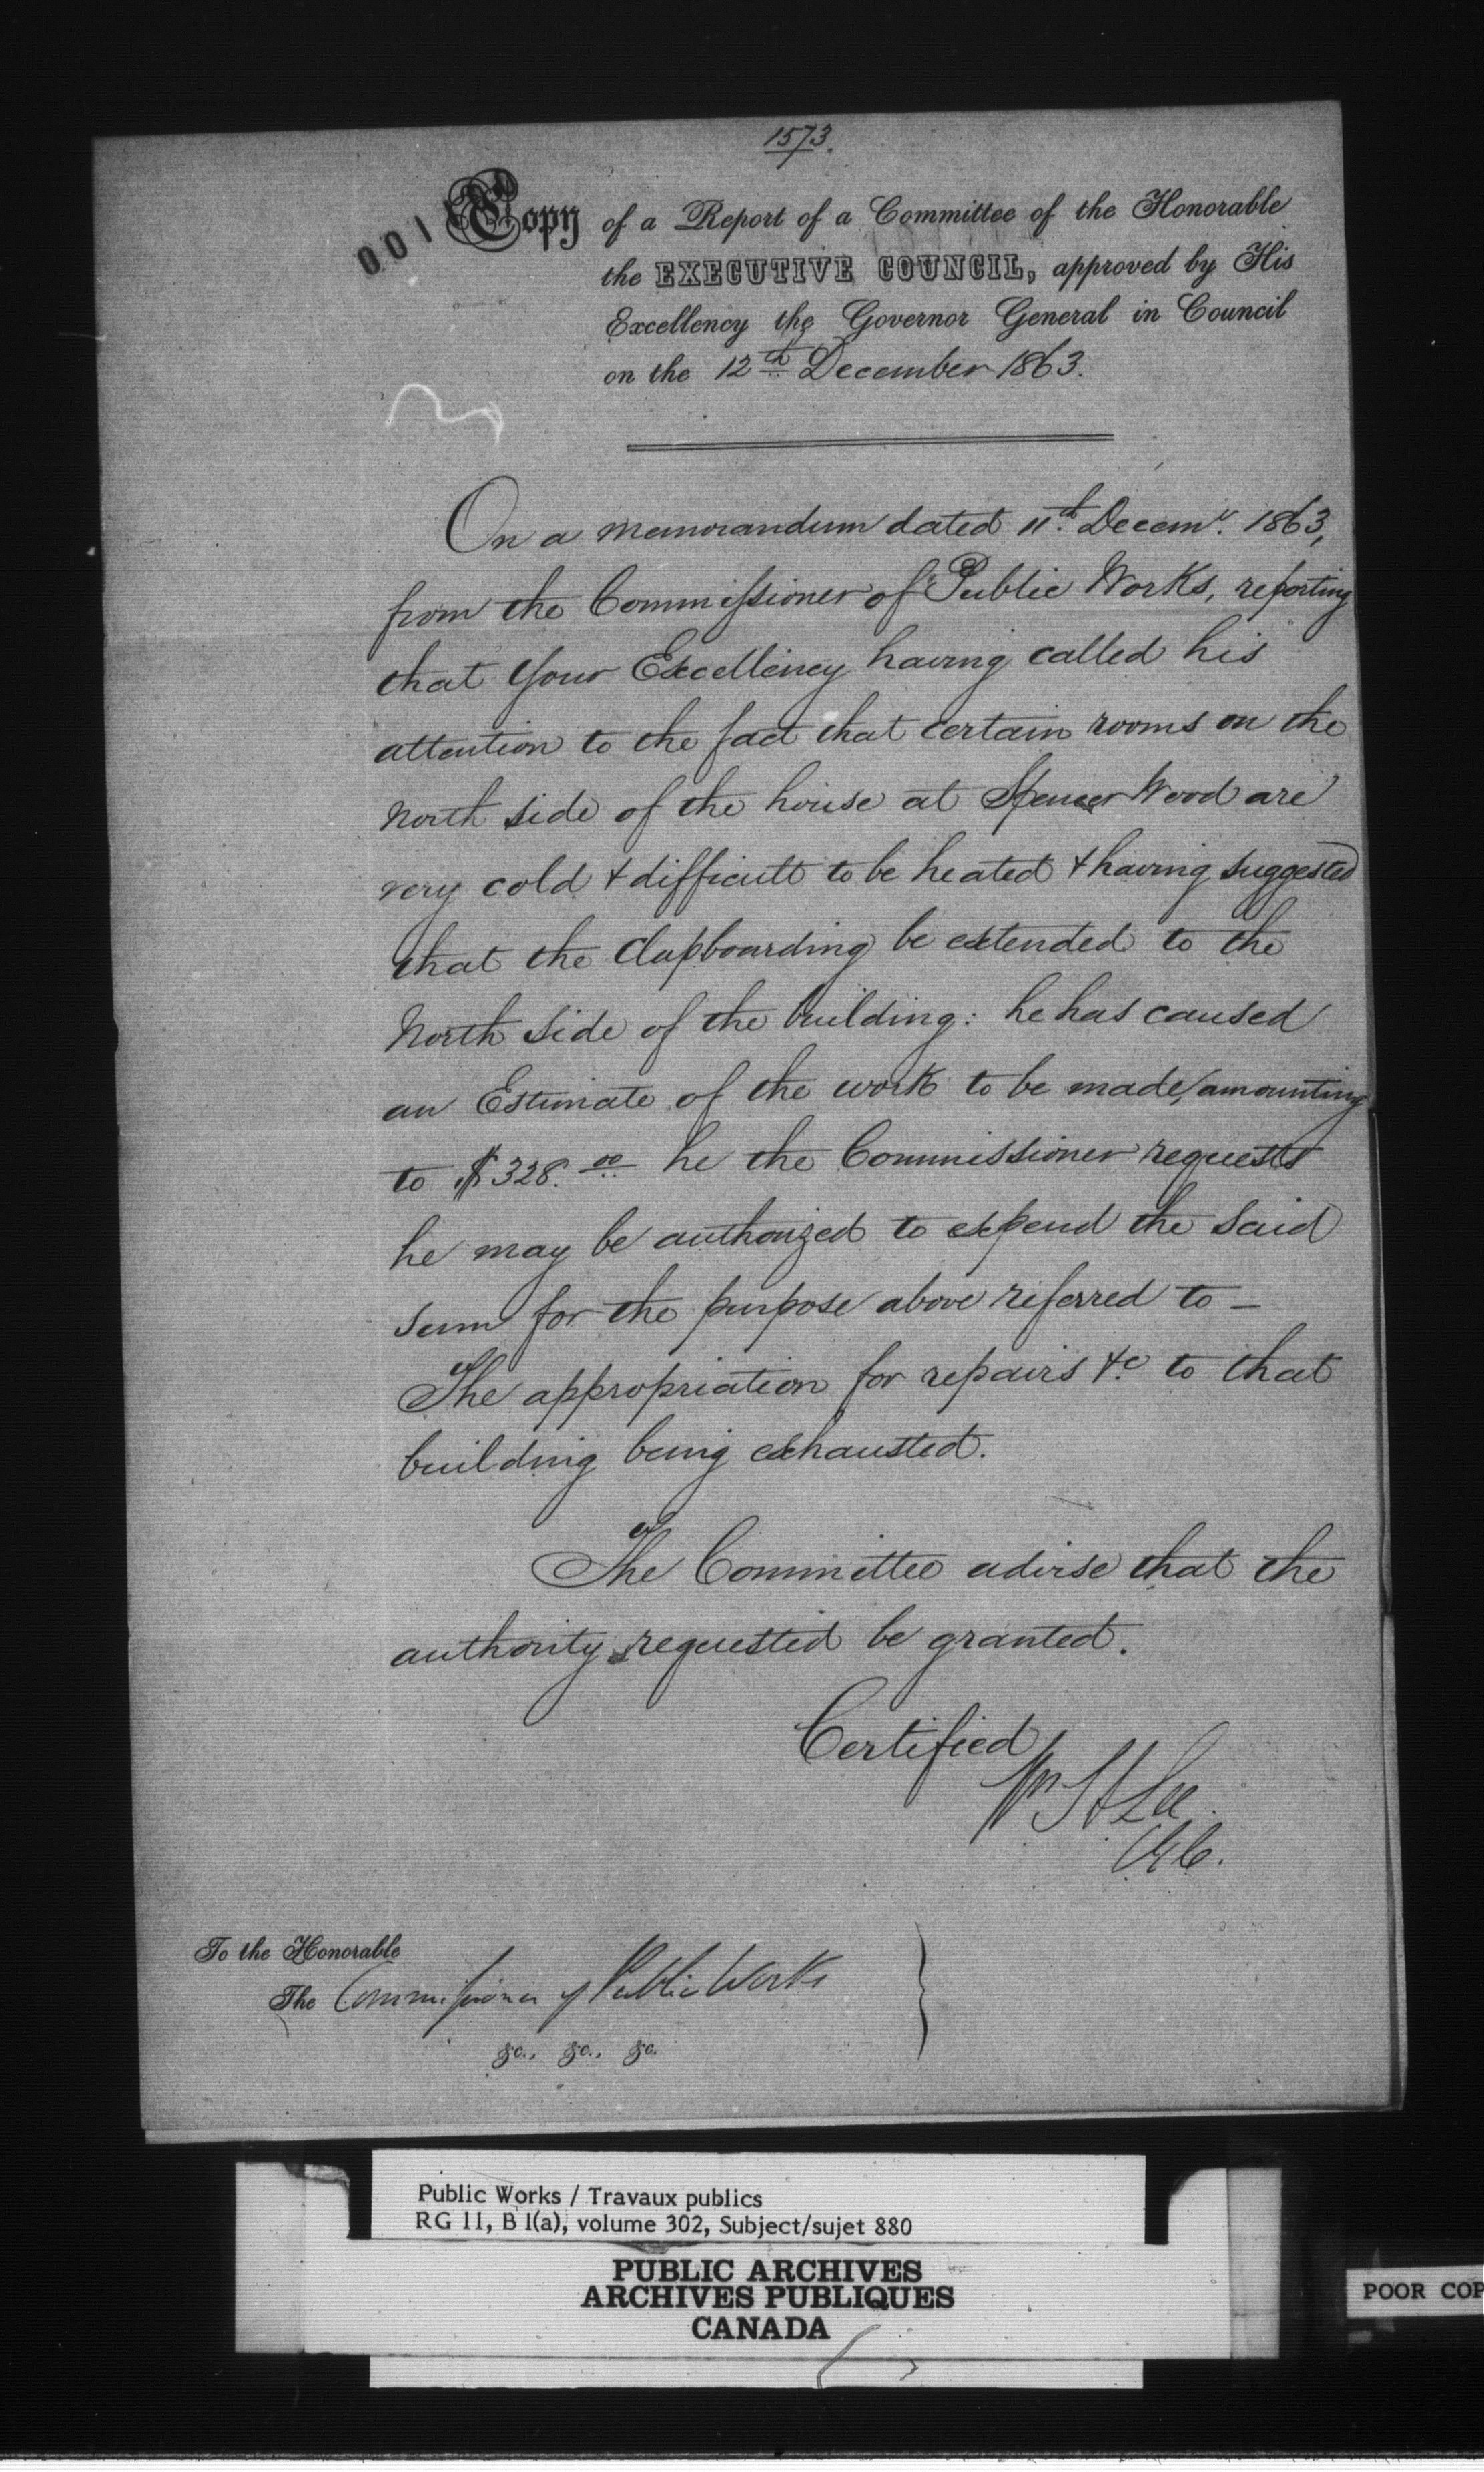 1573.
001
Copy of a Report of a Committee of the Honorable
the EXECUTIVE COUNCIL, approved by His
Excellency the Governor General in Council
on the 12th December 1863.
On a memorandum dated 11th Decemr. 1863,
from the Commissioner of Public Works, reporting
that Your Excellency having called his
attention to the fact that certain rooms on the
North side of the house at Spencer Wood are
very cold & difficult to be heated & having suggested
that the Clapboarding be extended to the
North side of the building: he has caused
an Estimate of the work to be made, amounting
to $328.00 he the Commissioner requests
he may be authorized to expend the said
sum for the purpose above referred to —
The appropriation for repairs &c to that
building being exhausted.
The Committee advise that the
authority requested be granted.
Certified
Wm H Lee
C.E.C.
To the Honorable
The Commissioner of Public Works
&c., &c., &c.
Public Works / Travaux publics
RG 11, B 1(a), volume 302, Subject/sujet 880
PUBLIC ARCHIVES
ARCHIVES PUBLIQUES
CANADA
POOR COP